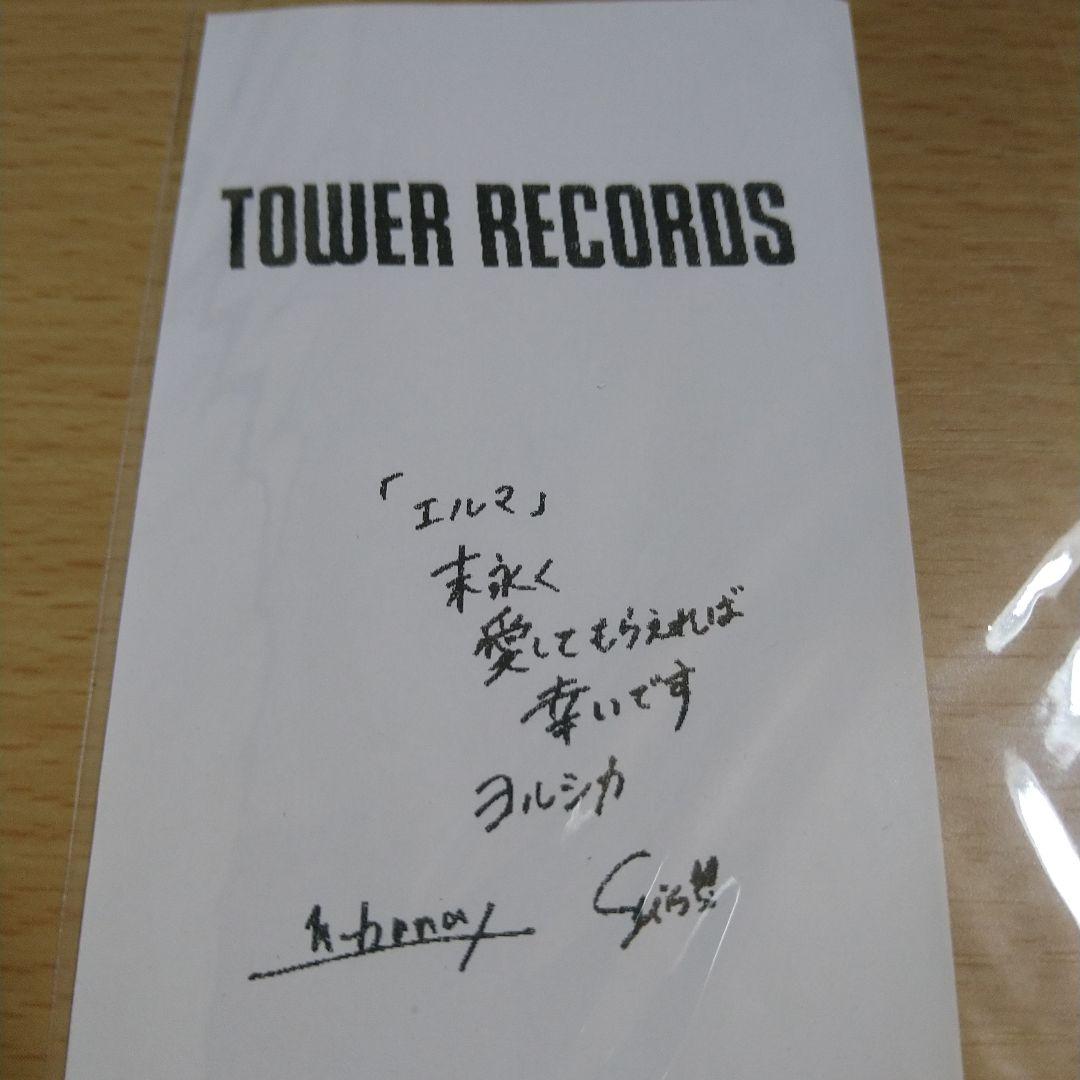 TOWER RECORDS
「エルマ」
末永く
愛してもらえれば
幸いです
ヨルシカ
n-buna
suis